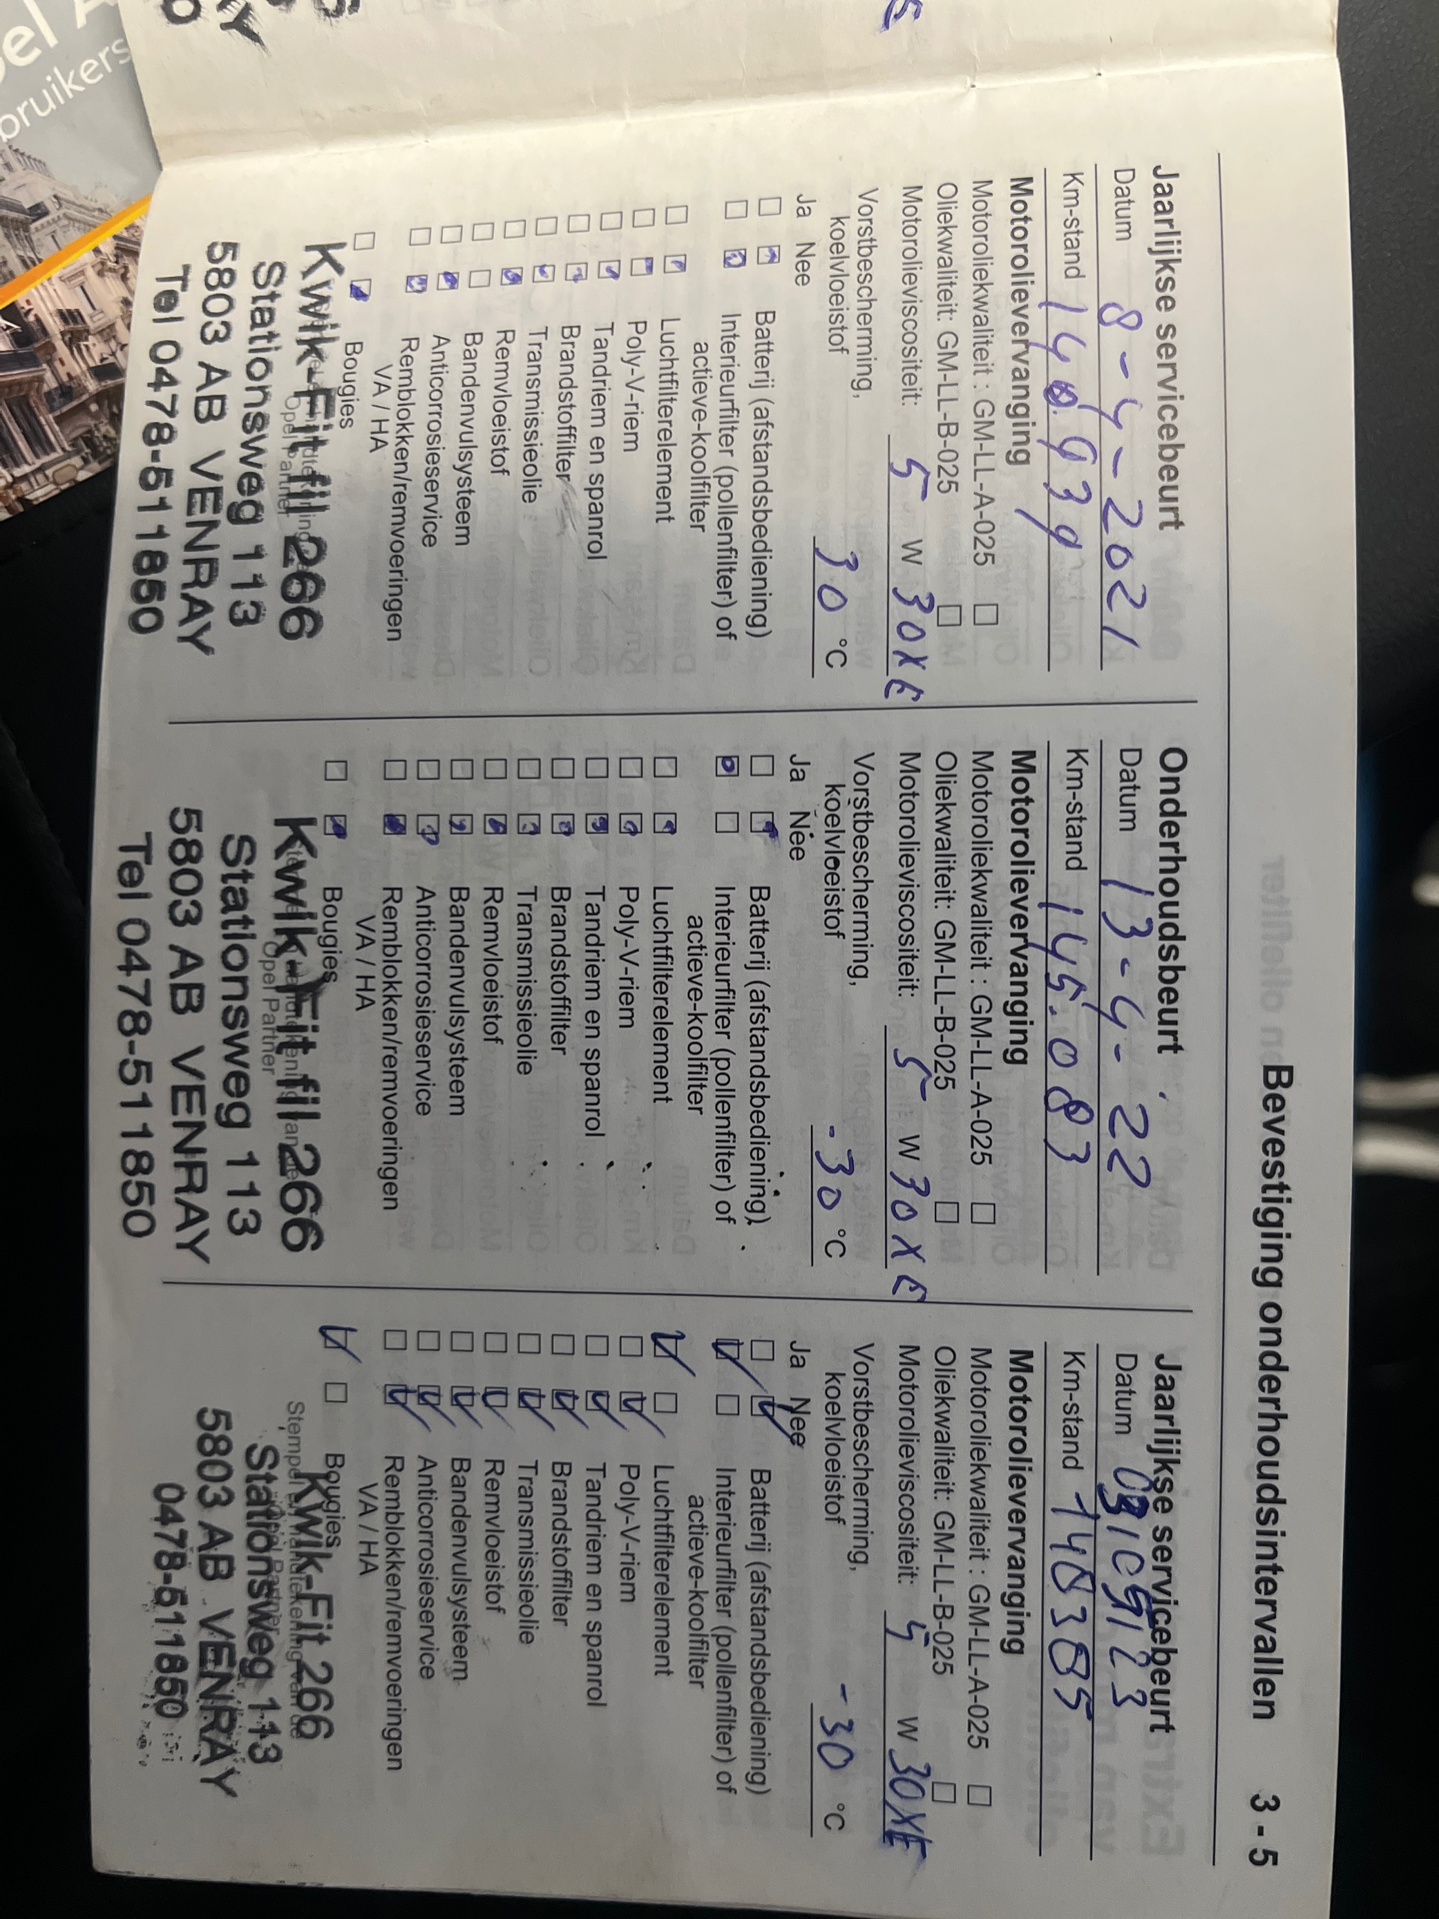 Bevestiging onderhoudsintervallen 3 - 5
Jaarlijkse servicebeurt
Datum 8-4-2021
Km-stand
Motorolievervanging
Motoroliekwaliteit : GM-LL-A-025 □
Oliekwaliteit: GM-LL-B-025 □
Motorolieviscositeit: 5 W 30XE
Vorstbescherming,
koelvloeistof 30 °C
Ja Nee
Batterij (afstandsbediening)
Interieurfilter (pollenfilter) of
actieve-koolfilter
Luchtfilterelement
Poly-V-riem
Tandriem en spanrol
Brandstoffilter
Transmissieolie
Remvloeistof
Bandenvulsysteem
Anticorrosieservice
Remblokken/remvoeringen
VA / HA
Bougies
Kwik-Fit fil 266
Opel Partner
Stationsweg 113
5803 AB VENRAY
Tel 0478-511850
Onderhoudsbeurt
Datum 13-4-22
Km-stand 145.083
Motorolievervanging
Motoroliekwaliteit : GM-LL-A-025 □
Oliekwaliteit: GM-LL-B-025 □
Motorolieviscositeit: 5 W 30XE
Vorstbescherming,
koelvloeistof -30 °C
Ja Nee
Batterij (afstandsbediening)
Interieurfilter (pollenfilter) of
actieve-koolfilter
Luchtfilterelement
Poly-V-riem
Tandriem en spanrol
Brandstoffilter
Transmissieolie
Remvloeistof
Bandenvulsysteem
Anticorrosieservice
Remblokken/remvoeringen
VA / HA
Bougies
Kwik-Fit fil 266
Opel Partner
Stationsweg 113
5803 AB VENRAY
Tel 0478-511850
Jaarlijkse servicebeurt
Datum
Km-stand 148385
Motorolievervanging
Motoroliekwaliteit : GM-LL-A-025 □
Oliekwaliteit: GM-LL-B-025 □
Motorolieviscositeit: 5 W 30XE
Vorstbescherming,
koelvloeistof -30 °C
Ja Nee
Batterij (afstandsbediening)
Interieurfilter (pollenfilter) of
actieve-koolfilter
Luchtfilterelement
Poly-V-riem
Tandriem en spanrol
Brandstoffilter
Transmissieolie
Remvloeistof
Bandenvulsysteem
Anticorrosieservice
Remblokken/remvoeringen
VA / HA
Bougies
Kwik-Fit 266
Stationsweg 113
5803 AB VENRAY
0478-511850